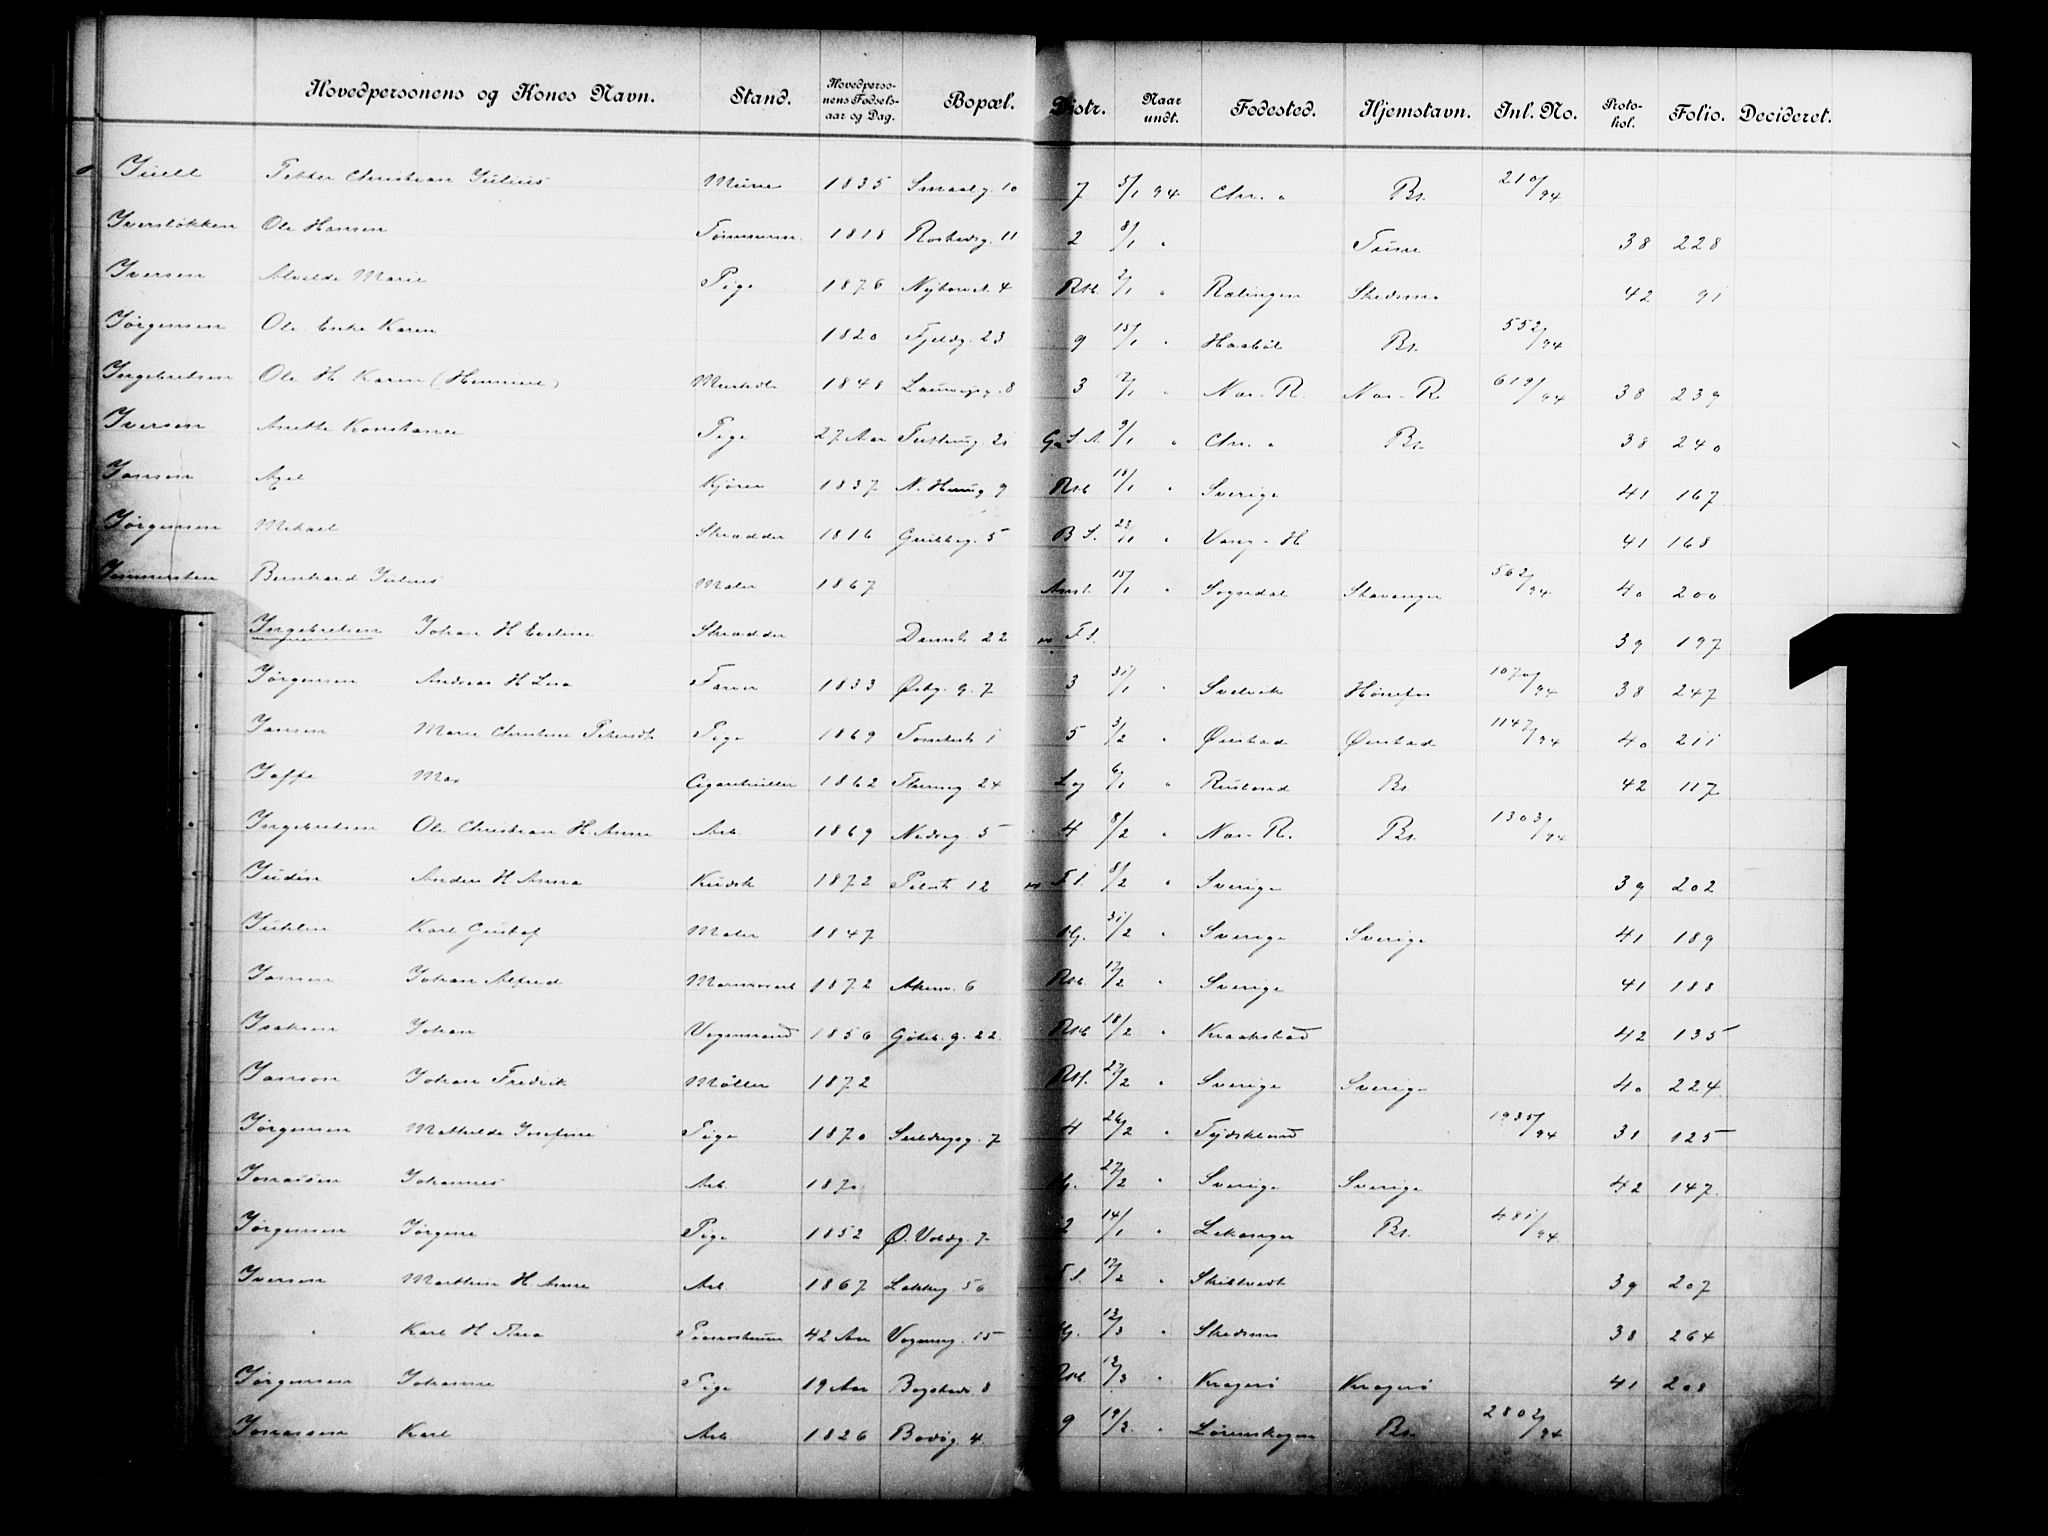 Hovedpersonens og Kones Navn. Stand. Hovedpersonens Fødselsaar og Dag. Bopæl. Distr. Naar undt. Fødested. Hjemstavn. Inl. No. Protokol. Folio. Decideret.
Juell Petter Christian Julius Murer 1835 Smaalg. 10 7 5/1 94 Chr. a Bs. 210/94
Iversløkken Ole Hansen Tømmerm. 1818 11 2 8/1 " Tune 38 228
Iversen Alvilde Marie Pige 1876 4 Rst. 2/1 " Rælingen Skedsmo 42 91
Jørgensen Ole Enke Karen 1820 Fjeldg. 23 9 15/1 " Bs. 552/94
Ingebretsen Ole H. Karen 1848 8 3 " Nes - R. Nes - R. 619/94 38 239
Iversen Anette Konstance Pige 27 Aar 21 9/1 " Chr. a Bs. 38 240
Janson Axel Kjører 1837 9 Rst. 18/1 " Sverige 41 167
Jørgensen Mikael Skrædder 1816 5 B S. 23/1 " Vang - H 41 168
Bernhard Julius Maler 1867 15/1 " Sogndal Stavanger 562/94 40 200
Ingebretsen Johan H Eveline Skrædder 22 F S. 39 197
Jørgensen Andreas H Lina Farver 1833 g. 7 3 31/1 " Svelvik Hønefos 1070/94 38 247
Jansen Marie Christine Pige 1869 Tomtest. 1 5 3/2 " Øiestad Øiestad 1147/94 40 211
Jaffe Max 1862 24 6/1 " Rusland Bs. 42 117
Ingebretsen Ole Christian H. Anne Arb. 1869 5 4 8/2 " Nes - R. Bs. 1303/94
Judin Anders H Anna Kudsk 1872 Pilest. 12 F S. 8/2 " Sverige 39 202
Juhlin Karl Gustaf Maler 1847 31/2 " Sverige Sverige 41 189
Jansen Johan Alfred 1872 Akersv. 6 Rst. 12/2 " Sverige 41 188
Isaksen Johan Vognmand 1856 Göteb. g. 22 Rst. 18/2 " Kraakstad 42 135
Janson Johan Fredrik Møller 1872 27/2 " Sverige Sverige 40 224
Jørgensen Mathilde Josefine Pige 1870 7 4 26/2 " Tydskland 1935/94 31 125
Jonassen Johannes Arb. 1870 27/2 " Sverige Sverige 42 147
Jørgensen Jørgine Pige 1852 Ø. Voldg. 7 2 14/1 " Lekanger Bs. 481/94
Iversen H Anne Arb. 1867 Lakkeg. 56 F S. 12/2 " Skibtvedt 39 207
" Karl H Tina 42 Aar Vognmg. 15 12/3 " Skedsmo 38 264
Jørgensen Johanne Pige 19 Aar Bogstadv. 8 Rst. 12/3 " Kragerø Kragerø 41 208
Jonassen Karl Arb. 1826 Bodøg. 4. 9 19/3 " Lørenskogen Bs. 2802/94